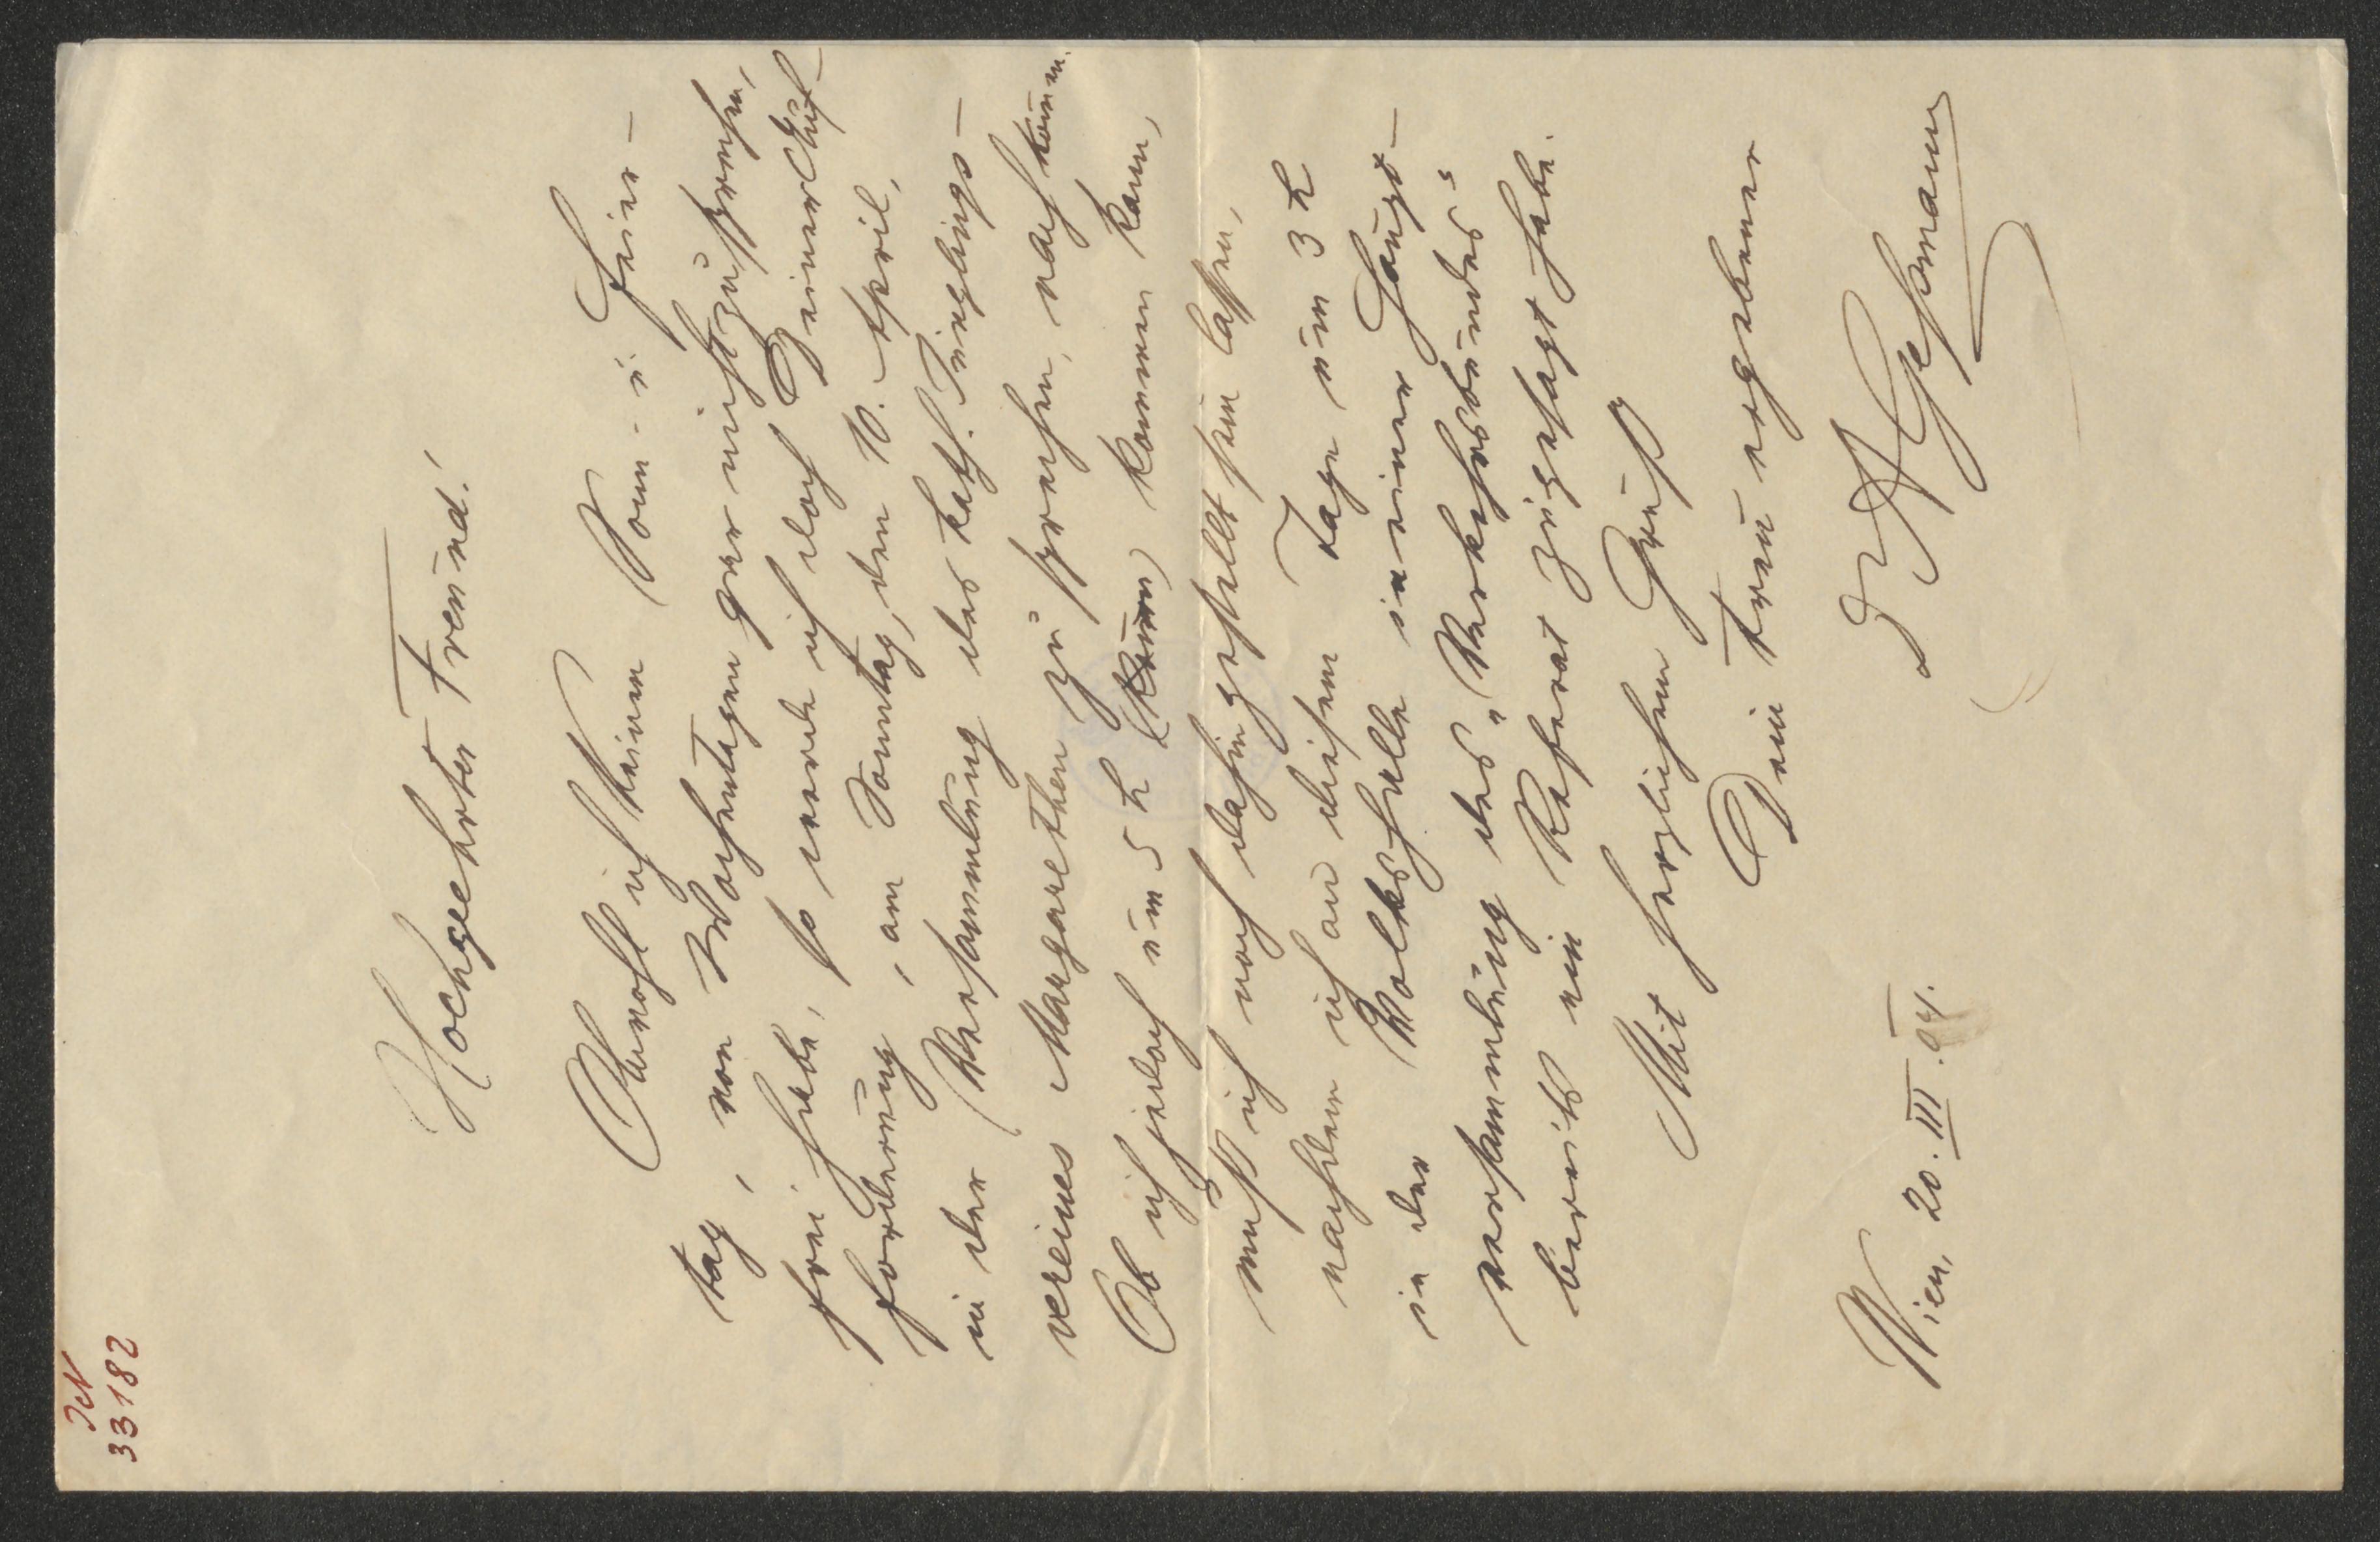 JcN
33182
Hochgeehrter Freund!
Obwohl ich keinen Sonn- u Feier-
tag, von Wochentagen gar nicht zu sprechen,
frei habe, so werde ich doch Deiner Auf-
forderung, am Sonntag, den 10. April,
in der Versammlung des kath. Jünglings-
vereines Margarethen zu sprechen, nachkommen.
Ob ich jedoch um 5 h kommen kann,
muß ich noch dahingestellt sein lassen,
nachdem ich an diesem Tage um 3 h
in der Volkshalle in einer Haupt-
versammlung des „Verkehrsbundes"
bereits ein Referat zugesagt habe.
Mit herzlichem Gruß
Dein treu ergebener
Dr Geßmann
Wien, 20. III. 04.